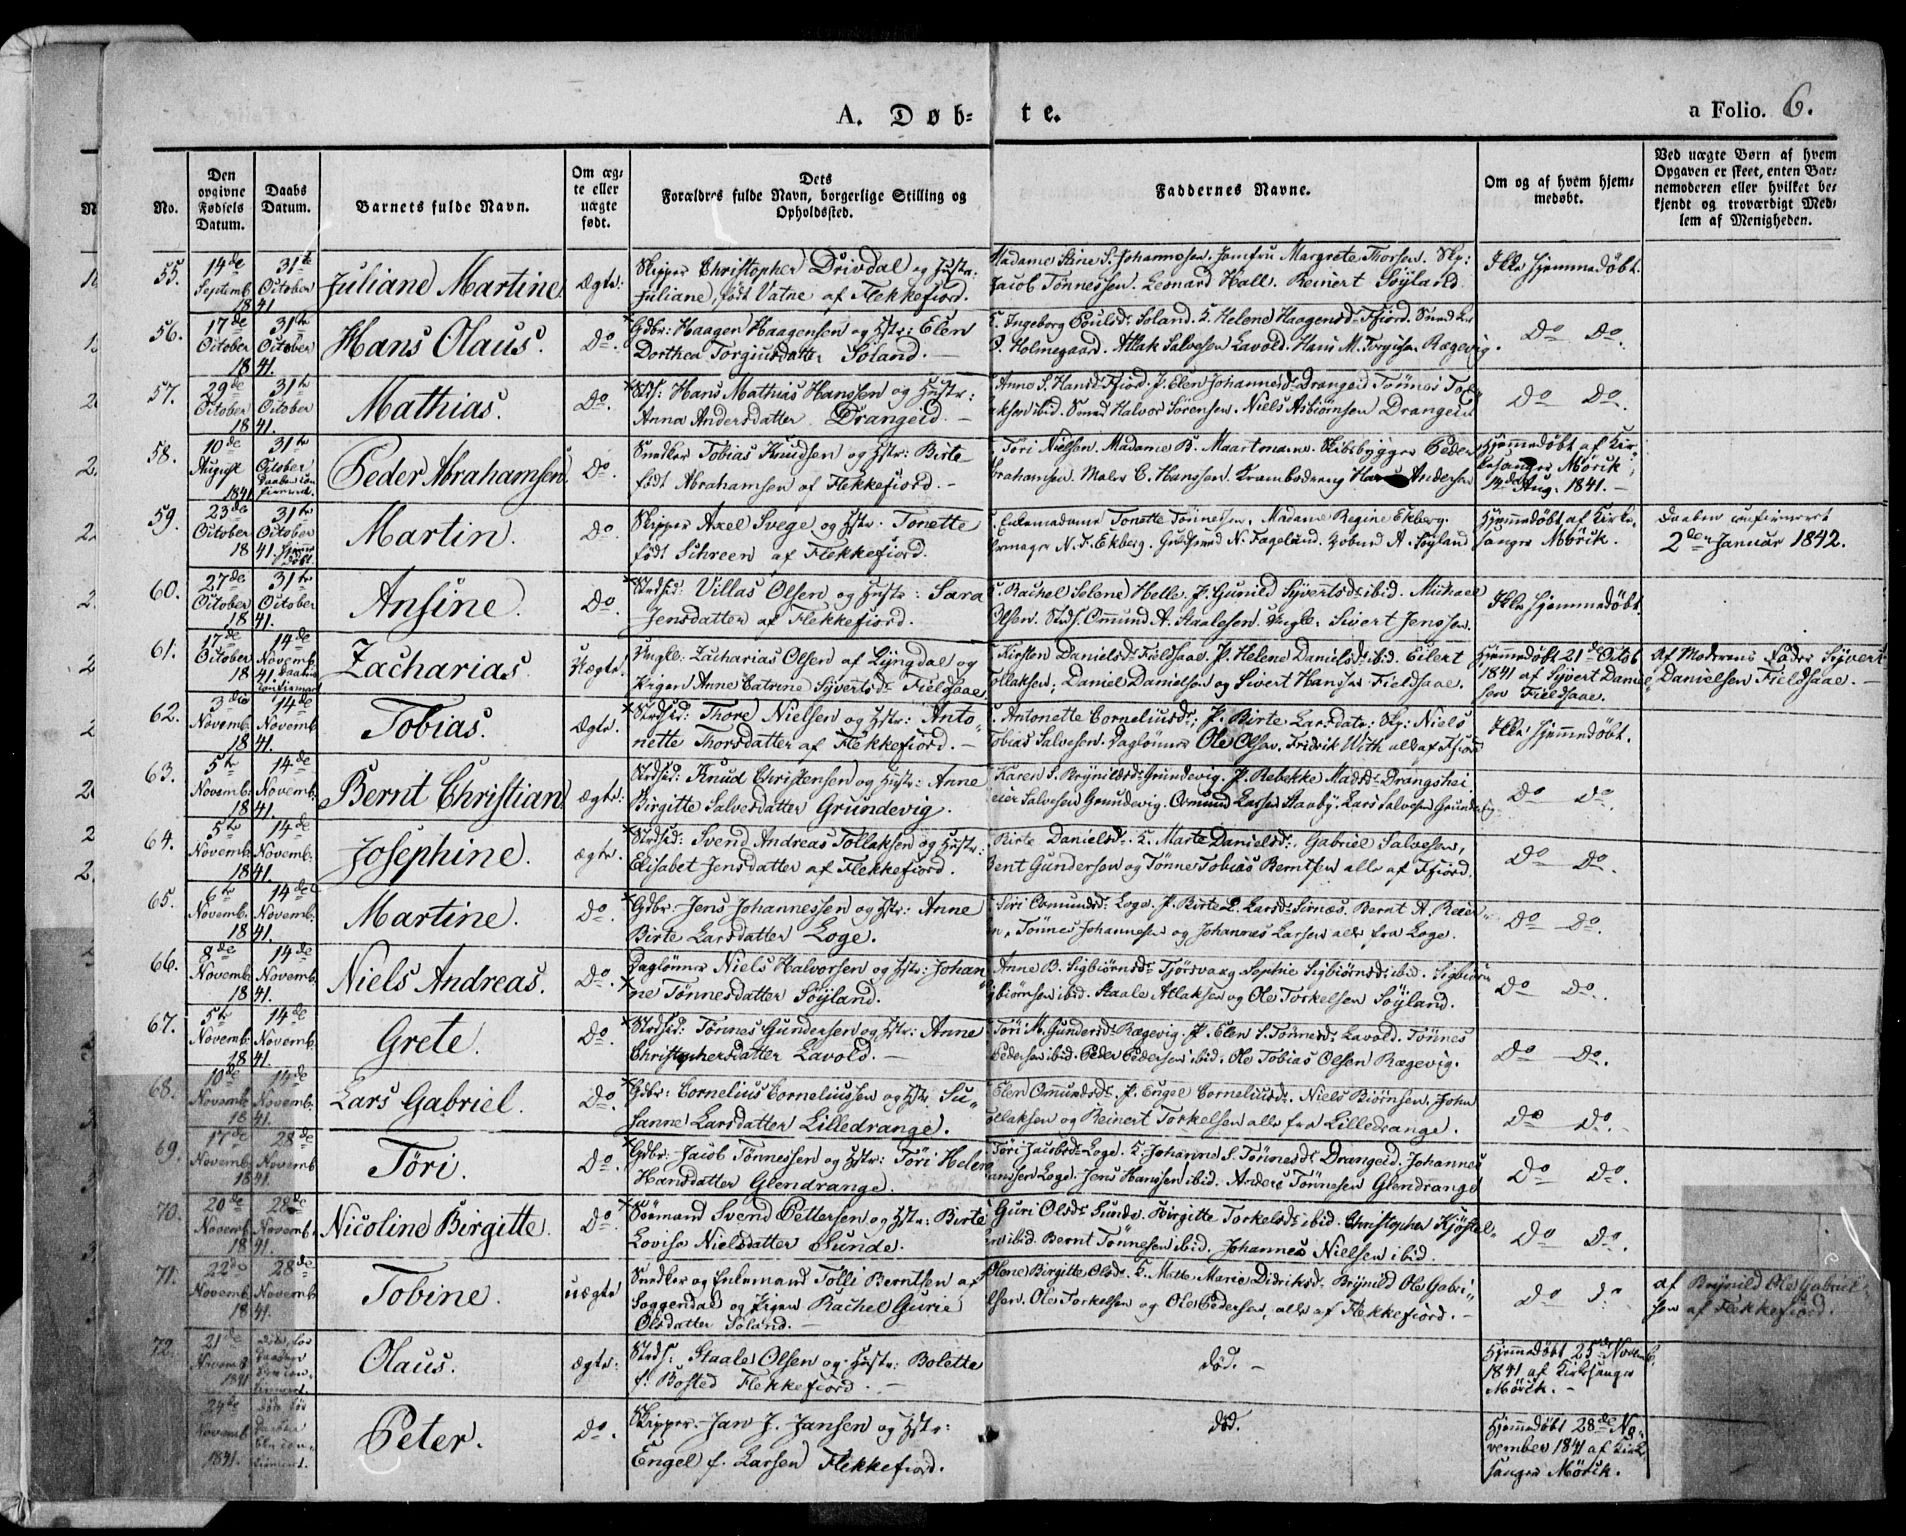 A. Døb-
te.
a Folio. 6.
No.
Den opgivne Fødsels Datum.
Daabs Datum.
Barnets fulde Navn.
Om ægte eller uægte født.
Dets Forældres fulde Navn, borgerlige Stilling og Opholdssted.
Faddernes Navne.
Om og af hvem hjemmedøbt.
Ved uægte Børn af hvem Opgaven er skeet, enten Barnemoderen eller hvilket bekjendt og troværdigt Medlem af Menigheden.
55. 14de Septemb. 1841. 31te October
Juliane Martine. Ægte.
Skipper Christopher Drivdal og Hustr:
Juliane, født Vatne af Flekkefiord.
Madame Stine S. Johannesen. Jomfru Margrete Thorsen. Skp:
Jacob Tønnessen. Leonard Hall. Reinert Søyland.
Ikke hjemmedøbt.
56. 17de October 1841. 31te October
Hans Olaus. Do.
Gdbr: Haagen Haagensen og Hstr: Elen
Dorthea Torgiusdatter Soland.
K. Ingeborg Poulsd: Soland. K. Helene Haagensd: Ffiord.
P. Holmegaard. Atlak Salvesen Lavold. Hans M. Torgisen Rægevig.
Do Do.
57. 29de October 1841. 31te October
Mathias. Do.
Strds: Hans Mathias Hanssen og Hustr:
Anna Andersdatter Drangeid.
Anne S. Hansd: Ffiord. P. Elen Johannesd: Drangeid Tönnes Tol-
aksen ibid. Smed Halvor Sørensen. Niels Asbiørnsen Drangeid
Do Do.
58. 10de August 1841. 31te October Daaben confirmeret.
Peder Abrahamsen. Do.
Snedker Tobias Knudsen og Hstr: Birte
født Abrahamsen af Flekkefiord.
Töri Nielsen. Madame B. Maartmann. Skibsbygger Peder
Abrahamsen. Maler C. Hanssen. Krambodreng Hans Andersen
Hjemmedøbt af Kir-
kesanger Mörik,
14de Aug. 1841.
59. 23de October 1841. 31te October hjemmedøbt.
Martin. Do.
Skipper Axel Svege og Hstr: Tonette
født Schreen af Flekkefiord.
Enkemadame Tonette Tønnessen. Madame Regine Ekberg.
N. F. Ekberg. Guldsmed N. Fageland. A. Søyland
Hjemmedøbt af Kirke-
sanger Mörik.
Daaben confirmeret
2den Januar 1842.
60. 27de October 1841. 31te October
Ansine. Do.
Strdsid: Villas Olsen og Hustr: Sara
Jensdatter af Flekkefiord.
K. Rachel Selene Helle. P. Gunild Syvertsd: ibid. Michael
Olsen. Strds. Omund A. Staalesen. Ungk. Sivert Jenssen.
Ikke hjemmedøbt
61. 17de October 1841. 14de Novemb. Daaben confirmeret
Zacharias. Uægte.
Ungk: Zacharias Olsen af Lyngdal og
Pigen Anne Catrine Syvertsd: Fieldsaae.
Kirsten Danielsd: Fieldsaae. P. Helene Danielsd: ibid. Eilert
Tollaksen; Daniel Danielsen og Sivert Hansen Fieldsaae.
Hjemmedøbt 21de Octob
1841 af Syvert Daniel-
sen Fieldsaae.
Af Moderens Fader Syvert
Danielsen Fieldsaae.
62. 3die Novemb. 1841. 14de Novemb.
Tobias. Ægte.
Strdsid: Thore Nielsen og Hstr: Anto-
nette Thorsdatter af Flekkefiord.
Antonette Corneliusd: P. Birte Larsdatr: Skp: Niels
Tobias Salvesen. Daglønner Ole Olsen. Fridrik With alle af Ffiord
Ikke hjemmedøbt.
63. 5te Novemb. 1841. 14de Novemb.
Bernt Christian. Ægte.
Strdsid: Knud Christensen og Hustr: Anne
Birgitte Salvesdatter Grundevig.
Karen S. Brynildsd: Grundevig. P. Rebekke Madsd: Drangshei
Salvesen Grundevig. Osmund Larsen Staaby. Lars Salvesen Grundevig.
Do Do.
64. 5te Novemb. 1841. 14de Novemb.
Josephine. ægte.
Strdsid: Svend Andreas Tollaksen og Hustr:
Elisabet Jensdatter af Flekkefiord.
Birte Danielsd. K. Marte Danielsd: Gabriel Salvesen,
Bent Gundersen og Tønne Tobias Berntsen alle af Ffiord.
Do Do.
65. 6te Novemb. 1841. 14de Novemb.
Martine. Do.
Gdbr: Jens Johannessen og Hstr: Anne
Birte Larsdatter Loge.
Siri Osmundsd: Loge. P. Birte L. Larsd: Sirnæs. Bernt A. Reier-
n, Tönnes Johannesen og Johannes Larsen alle fra Loge.
Do Do.
66. 8de Novemb. 1841. 14de Novemb.
Niels Andreas. Do.
Daglönner Niels Halvorsen og Hstr: Johan-
ne Tönnesdatter Søyland.
Anne B. Sigbiørnsd: Tjörsvaag. Sophie Sigbiørnsd: ibid. Sigbiørn
Sigbiørnsen ibid. Staale Atlaksen og Ole Torkelsen Søyland.
Do Do.
67. 5te Novemb. 1841. 14de Novemb.
Grete. Do.
Strdsid: Tönnes Gundersen og Hstr: Anne
Christophersdatter Lavold.
Töri M. Gundersd: Rægevig. P. Elen S. Tönnesd: Lavold. Tönnes
Pedersen ibid. Peder Pedersen ibid. Ole Tobias Olsen Rægevig.
Do Do.
68. 10de Novemb. 1841. 14de Novemb.
Lars Gabriel. Do.
Gdbr: Cornelius Corneliussen og Hstr. Su-
sanne Larsdatter Lilledrange.
Elen Omundsd: P. Engel Corneliusd: Niels Biørnsen, John
Tollaksen og Reinert Torkelsen alle fra Lilledrange.
Do Do.
69. 17de Novemb. 1841. 28de Novemb
Töri. Do.
Gdbr: Jacob Tønnessen og Hstr: Töri Helene
Hansdatter Glendrange.
Töri Jacobsd: Loge. K. Johanne S. Tönnesd: Drangeid. Johannes
Hanssen Loge. Jens Hanssen ibid. Anders Tønnesen Glendrange
Do Do.
70. 20de Novemb. 1841. 28de Novemb.
Nicoline Birgitte. Do.
Sömand Svend Pettersen og Hstr: Birte
Lovise Nielsdatter Sunde.
Guri Olsd: Sunde. Birgitte Torkelsd: ibid. Christopher Kjøstel-
sen ibid. Bernt Tønnesen ibid. Johannes Nielsen ibid.
Do Do.
71. 22de Novemb. 1841. 28de Novemb.
Tobine. uægte
Snedker og Enkemand Tölli Berntsen af
Soggendal og Pigen Rachel Gurie
Olsdatter Soland.
Olene Birgitte Olsd. K. Mette Marie Didriksd. Brynild Ole Gabri-
elsen. Ole Torkelsen og Ole Pedersen, alle af Flekkefiord.
Do Do
af Brynild Ole Gabriel-
sen af Flekkefiord.
72. 21de Novemb. 1841 Død før Daaben blev confirmeret.
Olaus. ægte.
Strds: Staale Olsen og Hustr: Bolette
f. Bosted Flekkefiord.
död.
Hjemmedøbt 25de Novemb.
1841 af Kirkesanger
Mörik.
24de Novemb. 1841. Død før Daaben blev confirmeret.
Peter. Do.
Skipper Jan J. Jansen og Hstr:
Engel f. Larsen Flekkefiord.
död.
Hjemmedøbt 28de No-
vember 1841 af Kirke-
sanger Mörik.